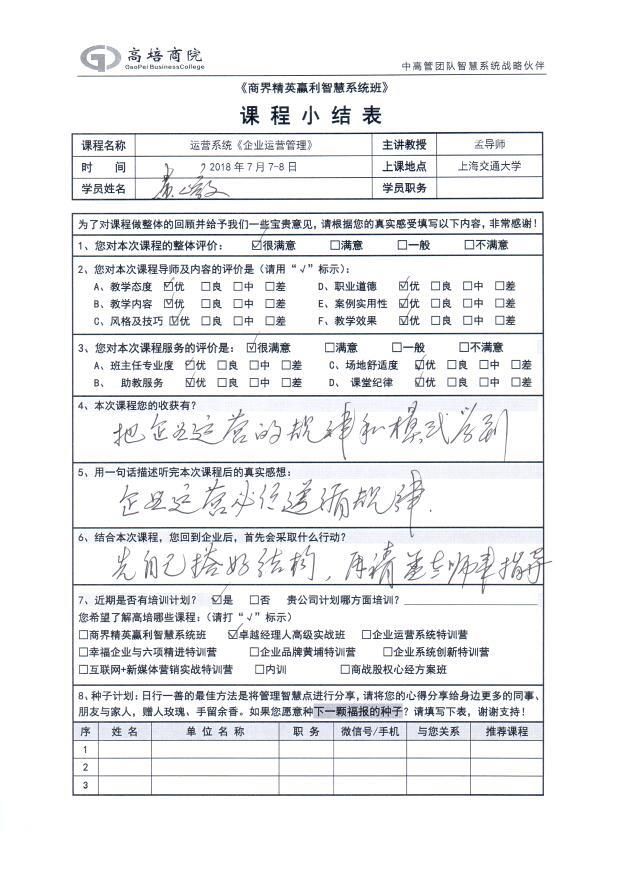 高培商院
GaoPei Business College
中高管团队智慧系统战略伙伴
《商界精英赢利智慧系统班》
课程小结表
课程名称 运营系统《企业运营管理》 主讲教授 孟导师
时 间 2018年7月7-8日 上课地点 上海交通大学
学员姓名 学员职务
为了对课程做整体的回顾并给予我们一些宝贵意见,请根据您的真实感受填写以下内容,非常感谢!
1、您对本次课程的整体评价: ☑很满意 □满意 □一般 □不满意
2、您对本次课程导师及内容的评价是(请用"√"标示):
A、教学态度 ☑优 □良 □中 □差 D、职业道德 ☑优 □良 □中 □差
B、教学内容 ☑优 □良 □中 □差 E、案例实用性 ☑优 □良 □中 □差
C、风格及技巧 ☑优 □良 □中 □差 F、教学效果 ☑优 □良 □中 □差
3、您对本次课程服务的评价是: ☑很满意 □满意 □一般 □不满意
A、班主任专业度 ☑优 □良 □中 □差 C、场地舒适度 ☑优 □良 □中 □差
B、 助教服务 ☑优 □良 □中 □差 D、 课堂纪律 ☑优 □良 □中 □差
4、本次课程您的收获有?
把企业运营的规律和模式学到
5、用一句话描述听完本次课程后的真实感想:
企业运营必须遵循规律.
6、结合本次课程,您回到企业后,首先会采取什么行动?
先自己搭好结构,再请 老师来指导
7、近期是否有培训计划? ☑是 □否 贵公司计划哪方面培训?
您希望了解高培哪些课程:(请打"√"标示)
□商界精英赢利智慧系统班 ☑卓越经理人高级实战班 □企业运营系统特训营
□幸福企业与六项精进特训营 □企业品牌黄埔特训营 □企业系统创新特训营
□互联网+新媒体营销实战特训营 □内训 □商战股权心经方案班
8、种子计划:日行一善的最佳方法是将管理智慧点进行分享,请将您的心得分享给身边更多的同事、
朋友与家人,赠人玫瑰、手留余香。如果您愿意种下一颗福报的种子?请填写下表,谢谢支持!
序 姓名 单位名称 职务 微信号/手机 与您关系 推荐课程
1
2
3